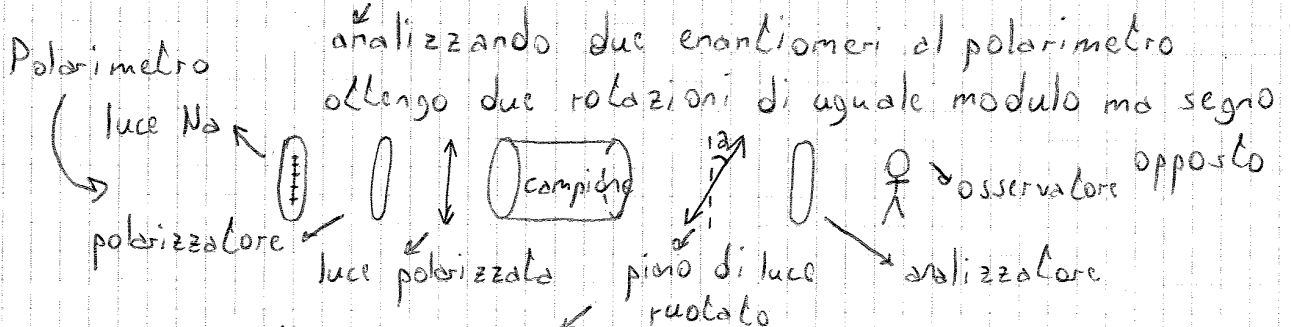 Polarimetro
analizzando due enantiomeri al polarimetro
ottengo due rotazioni di uguale modulo ma segno
opposto
luce Na
campione
a
osservatore
polarizzatore
luce polarizzata
piano di luce
ruotato
analizzatore